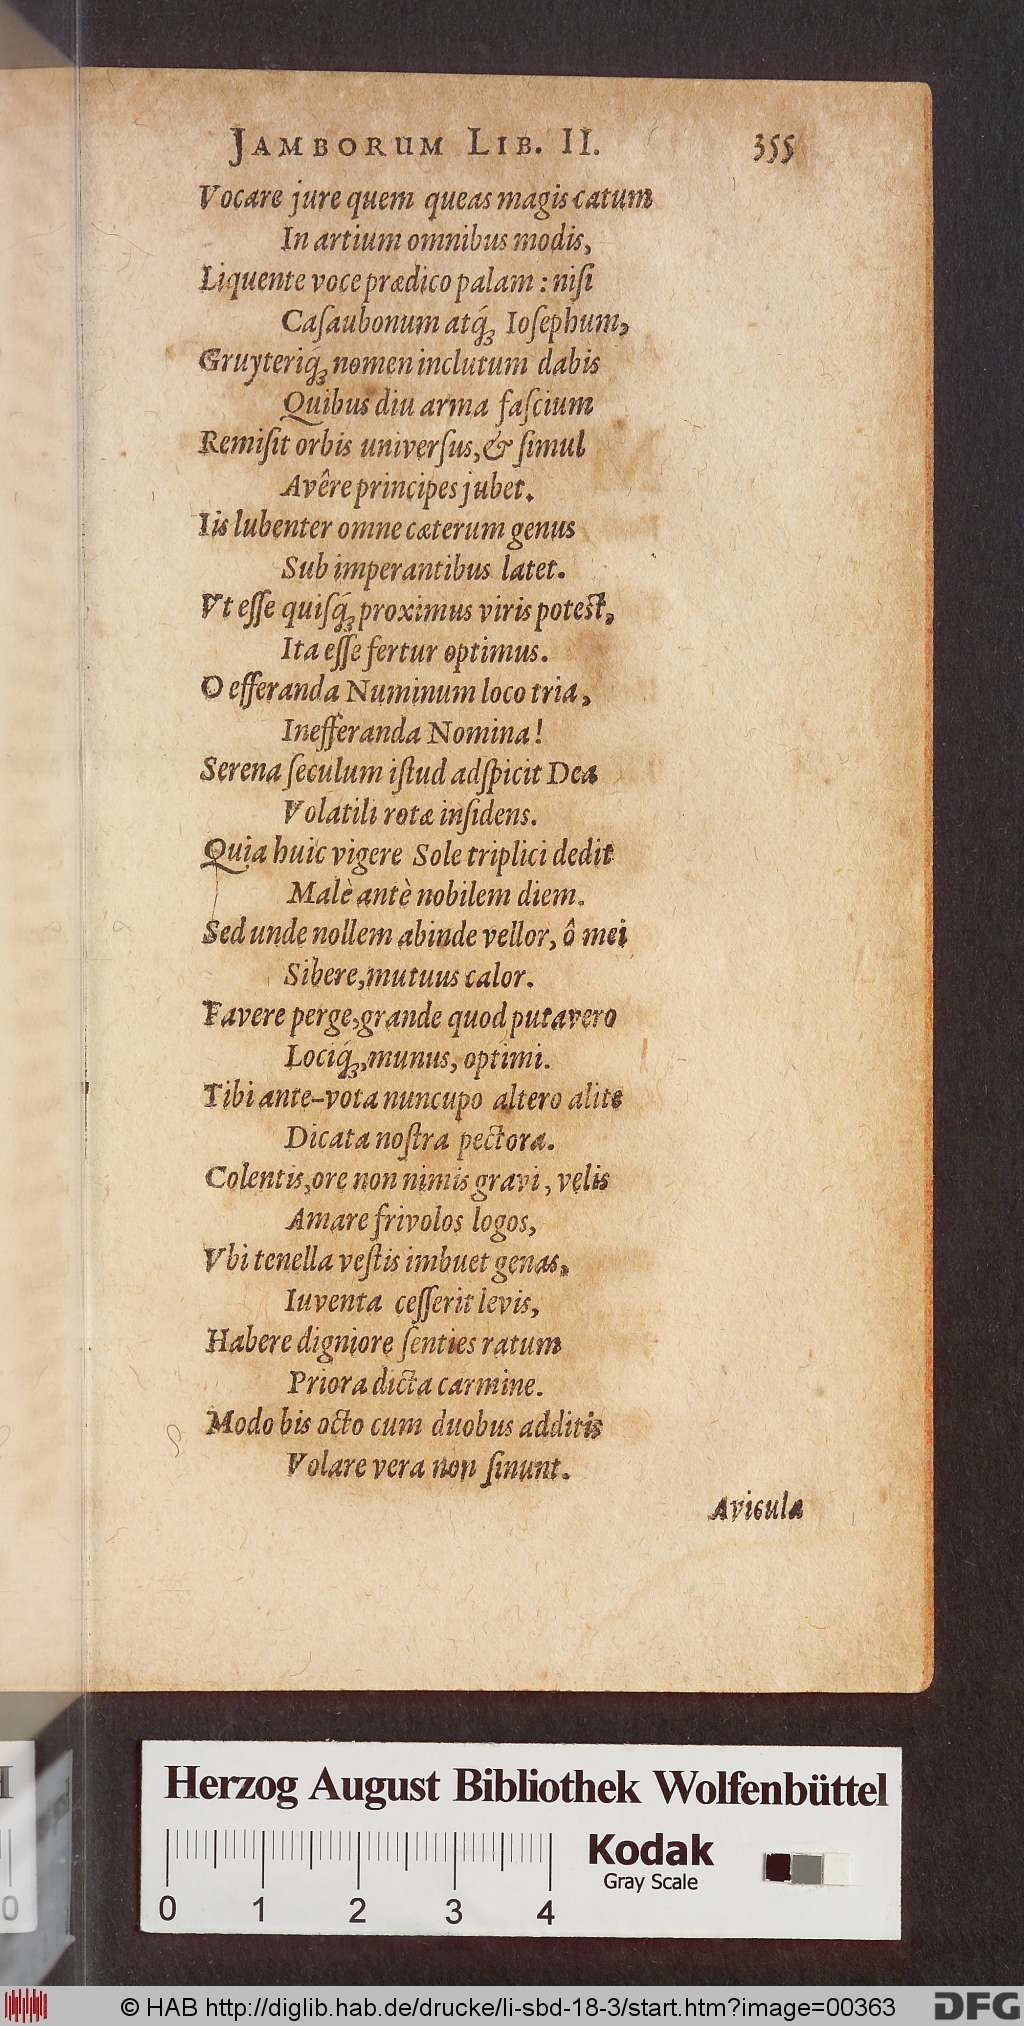 JAMBORUM LIB. II. 355
Vocare jure quem queas magis catum
In artium omnibus modis,
Liquente voce prædico palam : niſi
Caſaubonum atq́ꝫ Ioſephum,
Gruyteriq́ꝫ nomen inclutum dabis
Quibus diu arma faſcium
Remiſit orbis univerſus, & ſimul
Avêre principes jubet.
Iis lubenter omne cæterum genus
Sub imperantibus latet.
Vt eſſe quiſq́ꝫ proximus viris poteſt,
Ita eſſe fertur optimus.
O efferanda Numinum loco tria,
Inefferanda Nomina!
Serena ſeculum iſtud adſpicit Dea
Volatili rotæ inſidens.
Quia huic vigere Sole triplici dedit
Malè antè nobilem diem.
Sed unde nollem abinde vellor, ô mei
Sibere, mutuus calor.
Favere perge, grande quod putavero
Lociq́ꝫ, munus, optimi.
Tibi ante-vota nuncupo altero alite
Dicata noſtra pectora.
Colentis, ore non nimis gravi, velis
Amare frivolos logos,
Vbi tenella veſtis imbuet genas,
Iuventa ceſſerit levis,
Habere digniore ſenties ratum
Priora dicta carmine.
Modo bis octo cum duobus additis
Volare vera non ſinunt.
Avicula
Herzog August Bibliothek Wolfenbüttel
Kodak
Gray Scale
0 1 2 3 4
© HAB http://diglib.hab.de/drucke/li-sbd-18-3/start.htm?image=00363
DFG